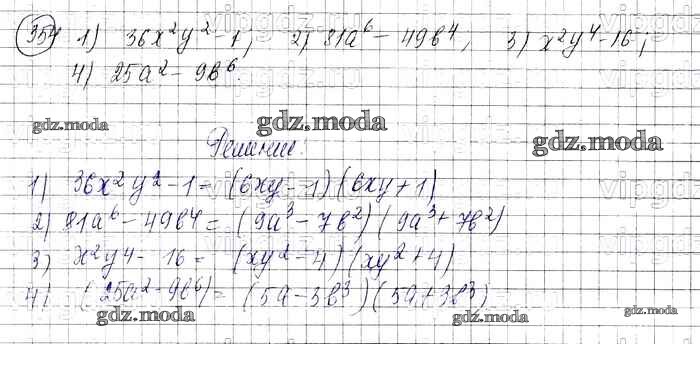 354 1) 36x²y² - 1; 2) 81a⁶ - 49b⁴; 3) x²y⁴ - 16;
4) 25a² - 9b⁶.
gdz.moda gdz.moda gdz.moda
Решение:
1) 36x²y² - 1 = (6xy - 1)(6xy + 1)
2) 81a⁶ - 49b⁴ = (9a³ - 7b²)(9a³ + 7b²)
3) x²y⁴ - 16 = (xy² - 4)(xy² + 4)
4) (25a² - 9b⁶) = (5a - 3b³)(5a + 3b³)
gdz.moda gdz.moda gdz.moda